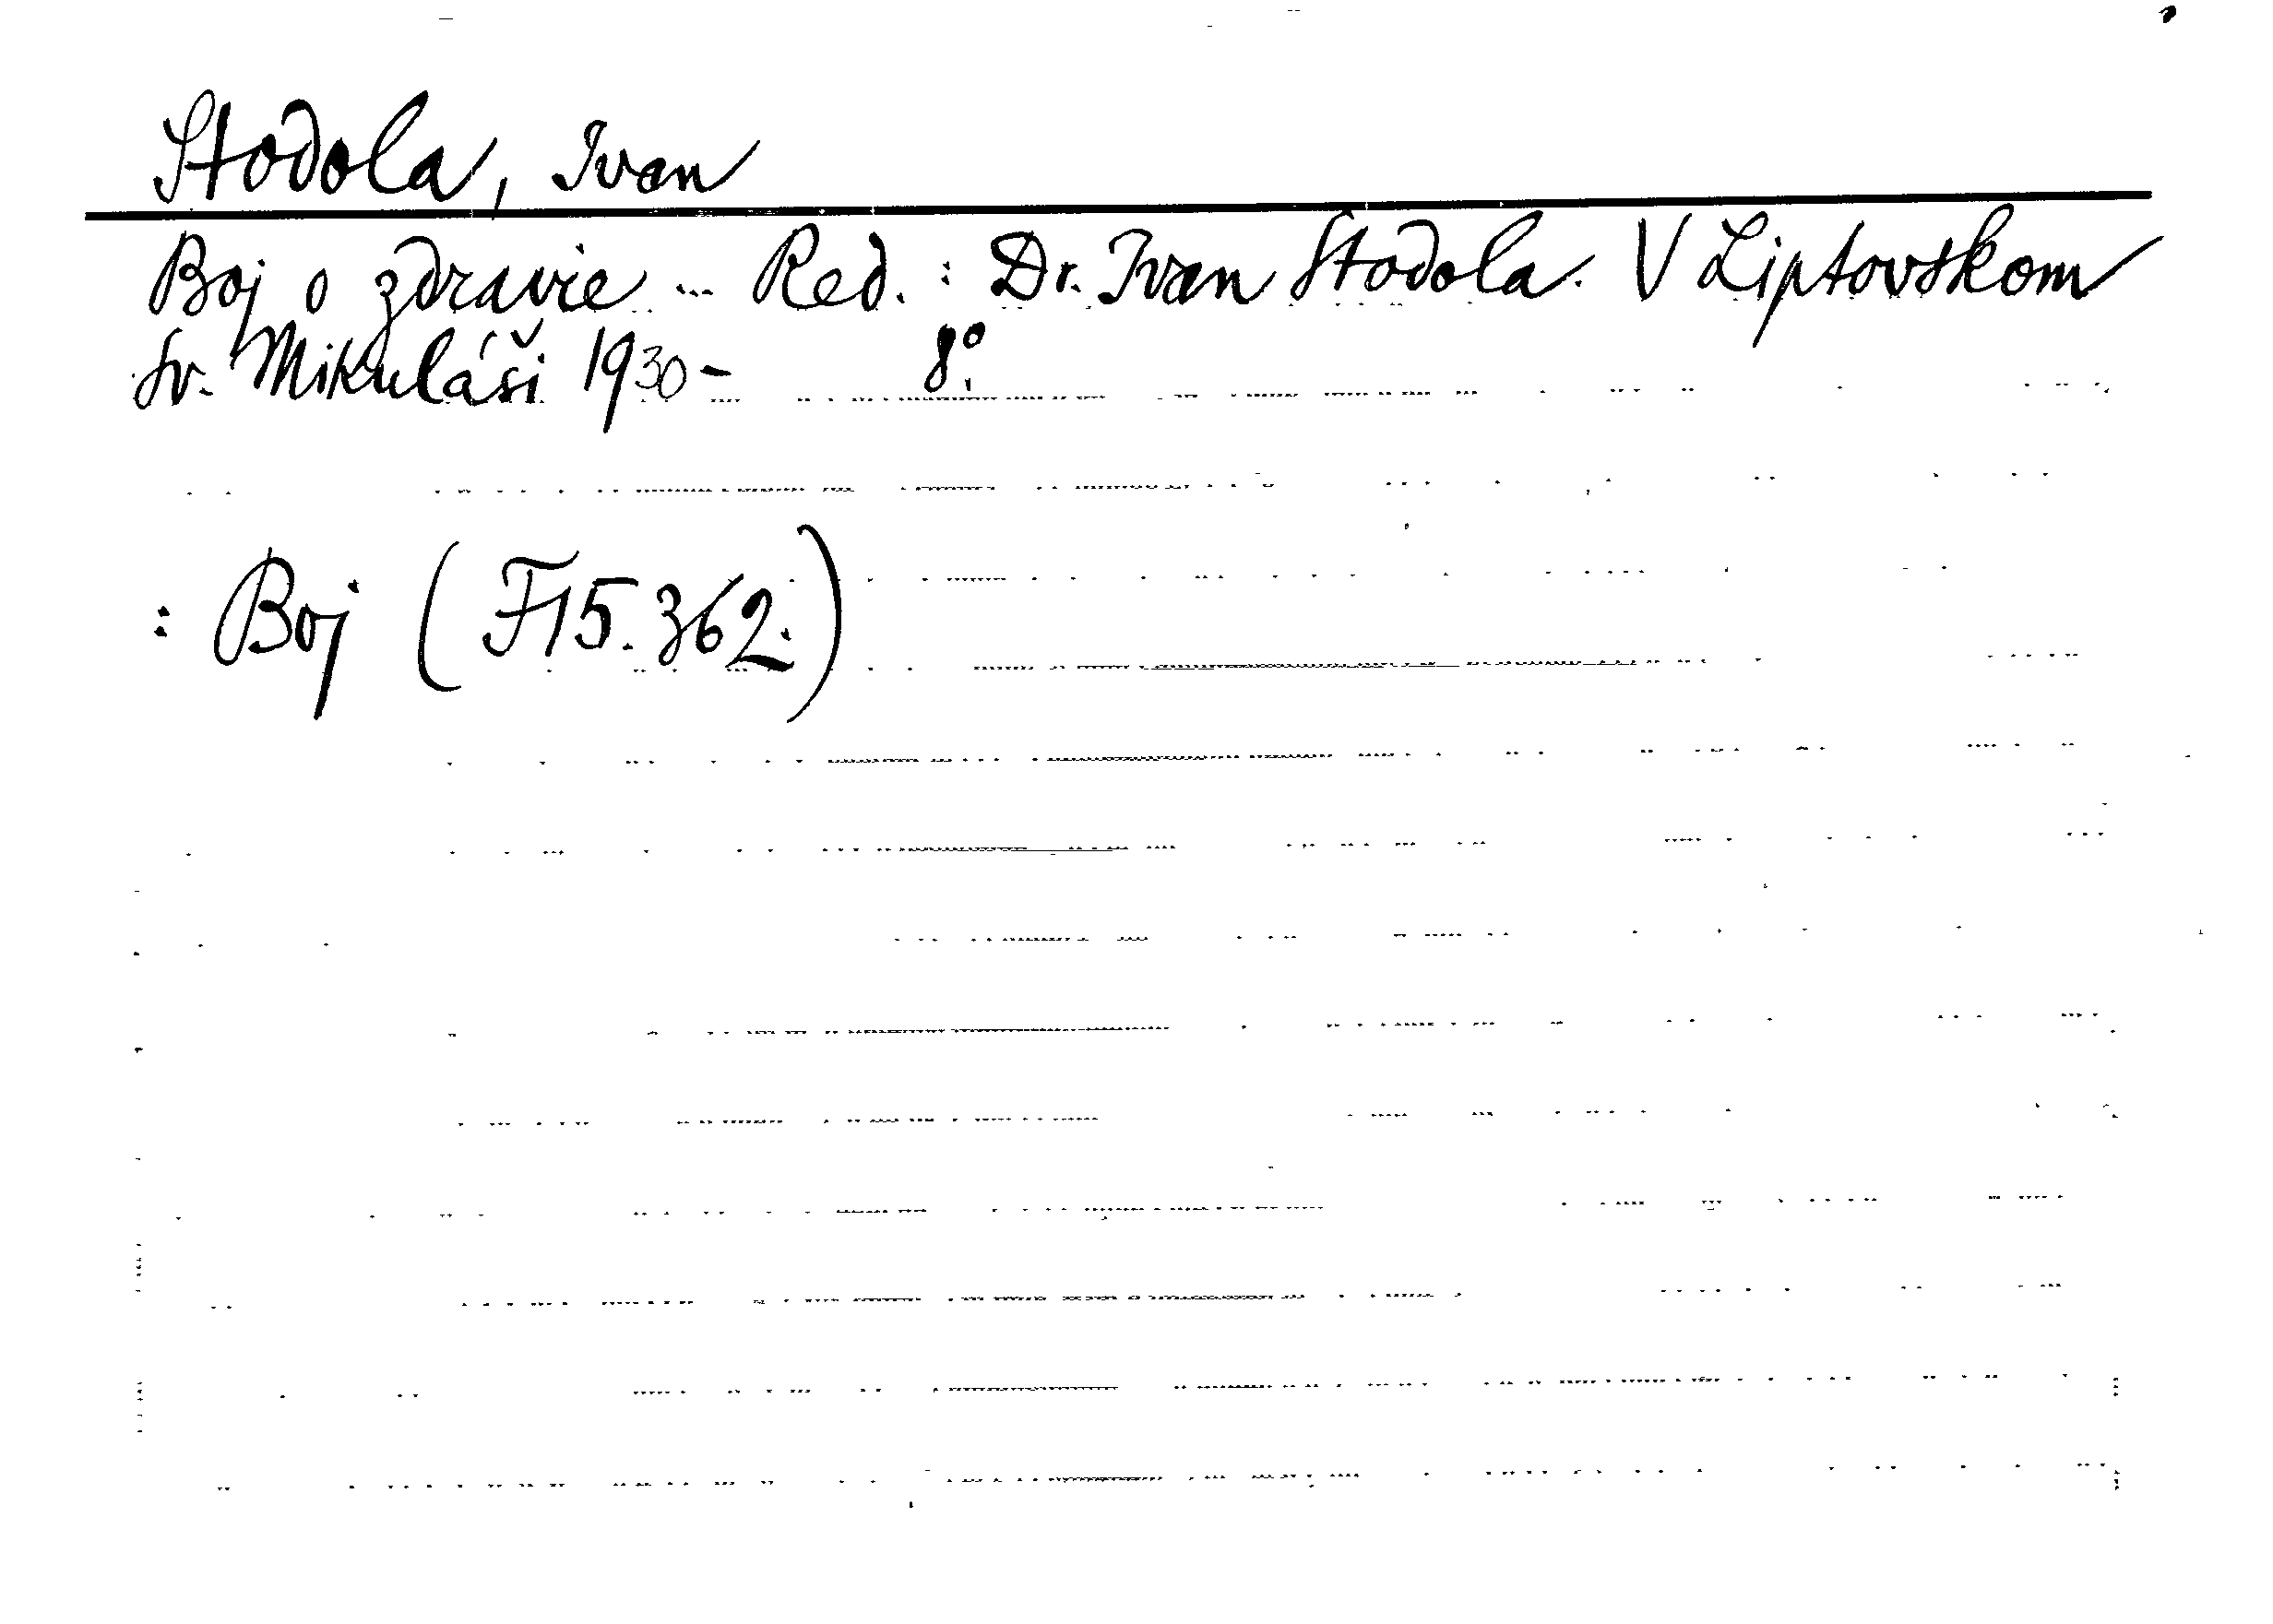 Stodola, Ivan
Boj o zdravie ... Red.: Dr. Ivan Stodola. V Liptovskom
Sv. Mikuláši 1930- 8°.
: Boj (F15.362.)